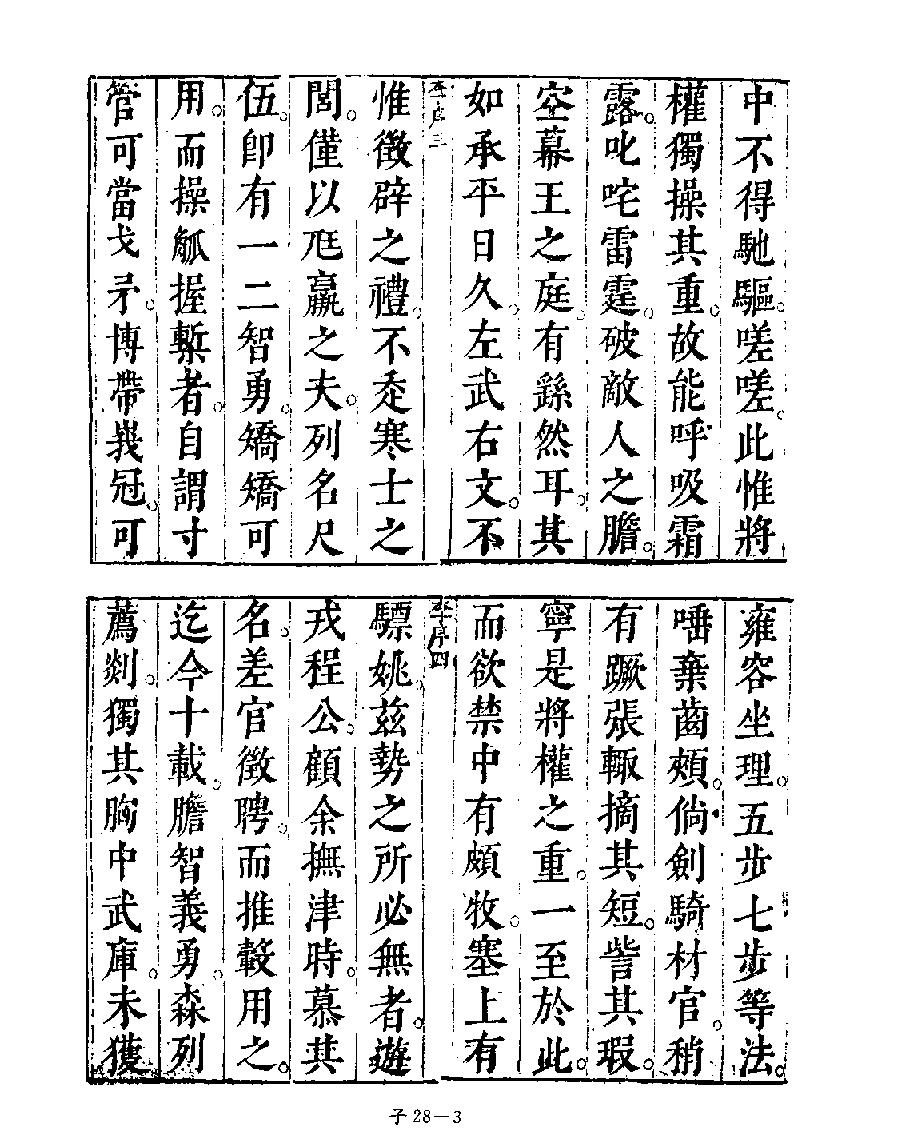 中不得馳驅嗟嗟。此惟將
權獨操其重。故能呼吸霜
露。叱咤雷霆。破敵人之膽。
空幕王之庭。有繇然耳。其
如承平日久。左武右文。不
李序三
惟徵辟之禮。不及寒士之
閭。僅以尫羸之夫。列名尺
伍。卽有一二智勇。矯矯可
用。而操觚握槧者。自謂寸
管可當戈矛。博帶峩冠。可
雍容坐理。五步七步等法。
唾棄齒頰。倘劍騎材官。稍
有蹶張。輙摘其短。訾其瑕。
寧是將權之重。一至於此。
而欲禁中有頗牧。塞上有
李序四
驃姚。茲勢之所必無者。遊
戎程公。顧余撫津時。慕其
名。差官徵聘。而推轂用之。
迄今十載。膽智義勇。森列
薦剡。獨其胸中武庫。未獲
子28—3